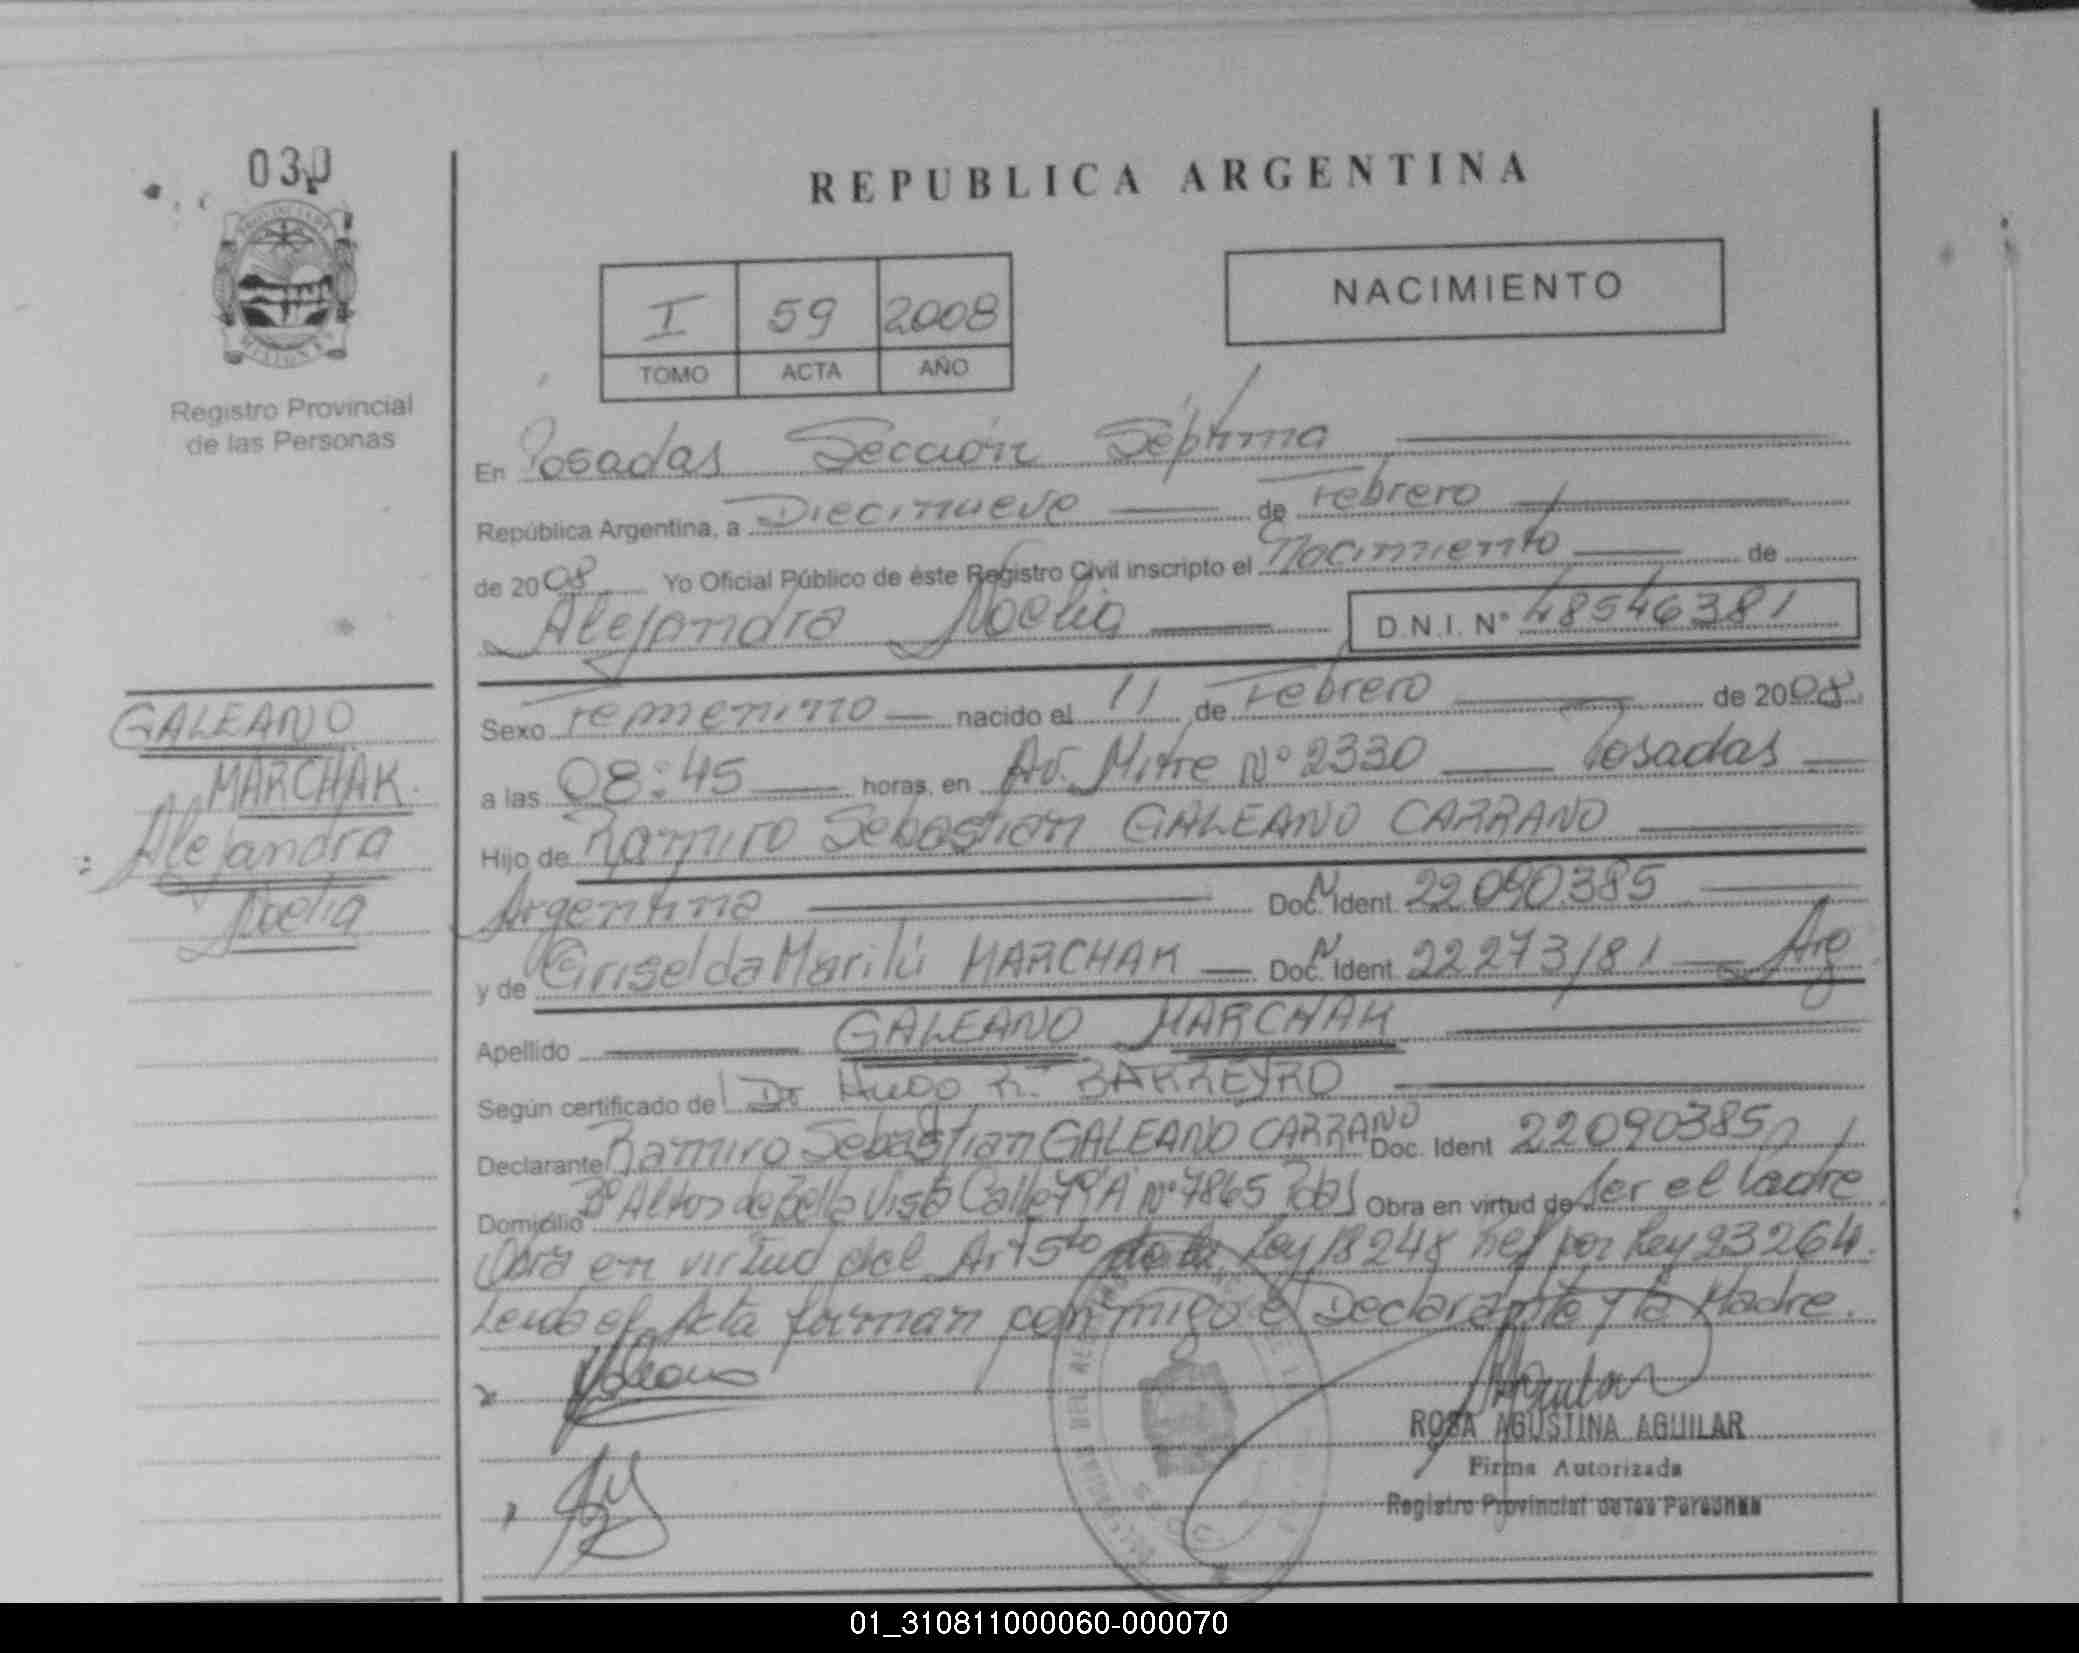 030
PROVINCIA DE
MISIONES
Registro Provincial
de las Personas
REPUBLICA ARGENTINA
I 59 2008
TOMO ACTA AÑO
NACIMIENTO
En Posadas Sección Séptima
República Argentina, a Diecinueve de Febrero
de 2008 Yo Oficial Público de éste Registro Civil inscripto el Nacimiento de
Alejandra Noelia D.N.I. Nº 48546381
GALEANO
MARCHAK
Alejandra
Noelia
Sexo Femenino nacido el 11 de Febrero de 2008
a las 08:45 horas, en Av. Mitre Nº 2330 Posadas
Hijo de Ramiro Sebastian GALEANO CARRANO
Argentina Doc. N Ident. 22090385
y de Griselda Marilú MARCHAK Doc. N Ident. 22273181 Arg
Apellido GALEANO MARCHAK
Según certificado del Dr Hugo R. BARREYRO
Declarante Ramiro Sebastian GALEANO CARRANO Doc. Ident 22090385
Domicilio Bº Altos de Bella Vista Calle Nº 7865 Pdas Obra en virtud de ser el Padre
Obra en virtud del Art 5to de la Ley 18248 Ref por Ley 23264.
Leida el Acta firman conmigo el Declarante y la Madre.
ROSA AGUSTINA AGUILAR
Firma Autorizada
Registro Provincial de las Personas
01_310811000060-000070